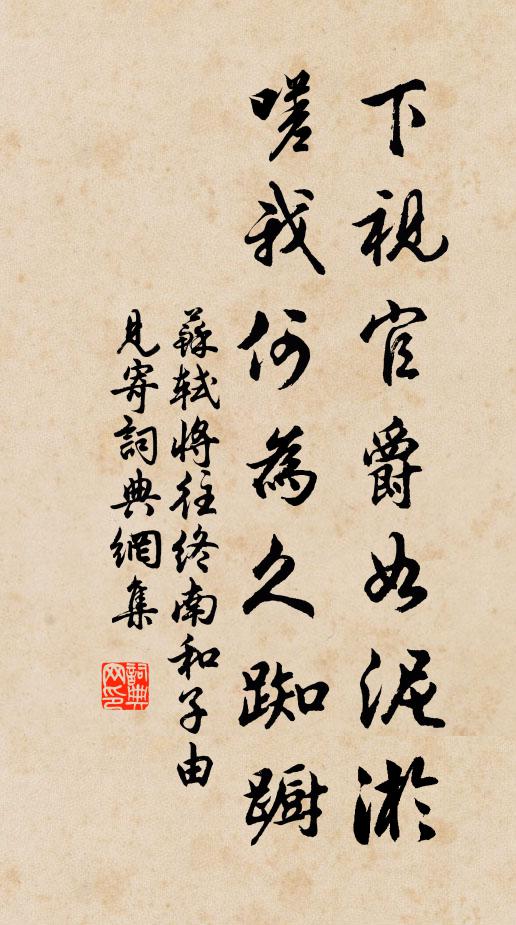 下視官爵如泥淤
嗟我何為久踟躕
蘇軾將往終南和子由
見寄詞典網集
詞典网印